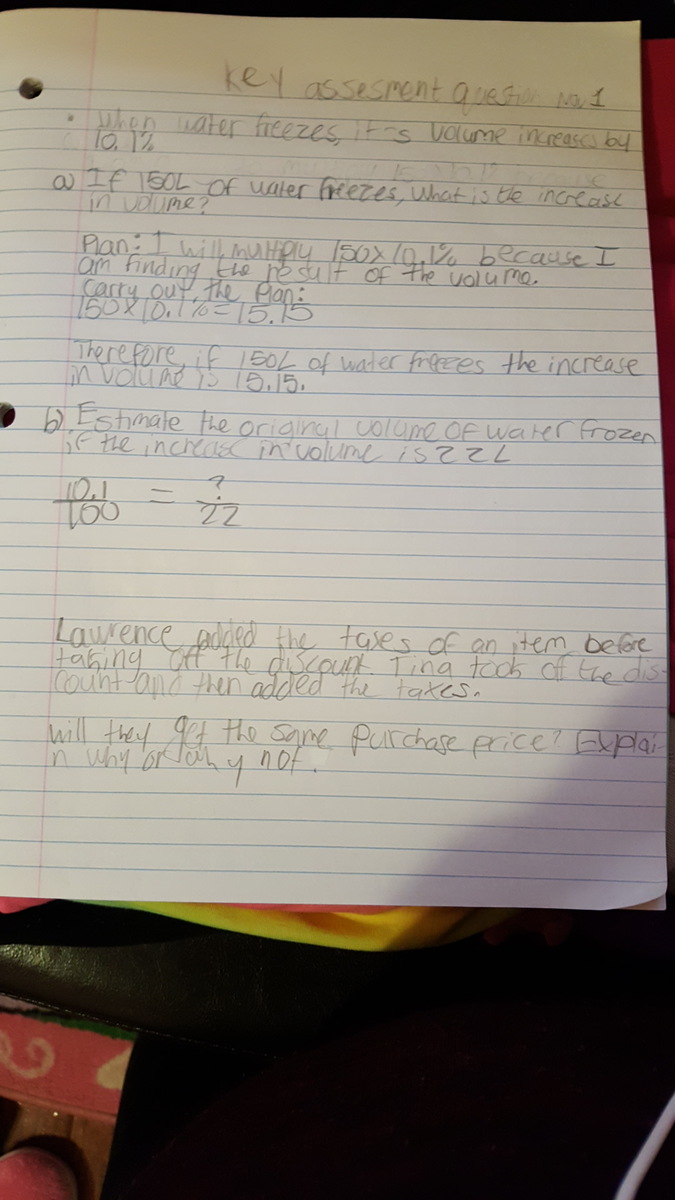 Key assesment question No 1
• When water freezes, it's volume increases by
10.1%
a) If 150L of water freezes, what is the increase
in volume?
Plan: I will multiply 150x10.1% because I
am finding the result of the volume.
Carry out the Plan:
150x10.1%=15.15
Therefore, if 150L of water freezes the increase
in volume is 15.15.
b) Estimate the original volume of water frozen
if the increase in volume is 22L
10.1/100 = ?/22
Lawrence added the taxes of an item before
taking off the discount. Tina took of the dis-
count and then added the taxes.
Will they get the same purchase price? Explai-
n why or why not.